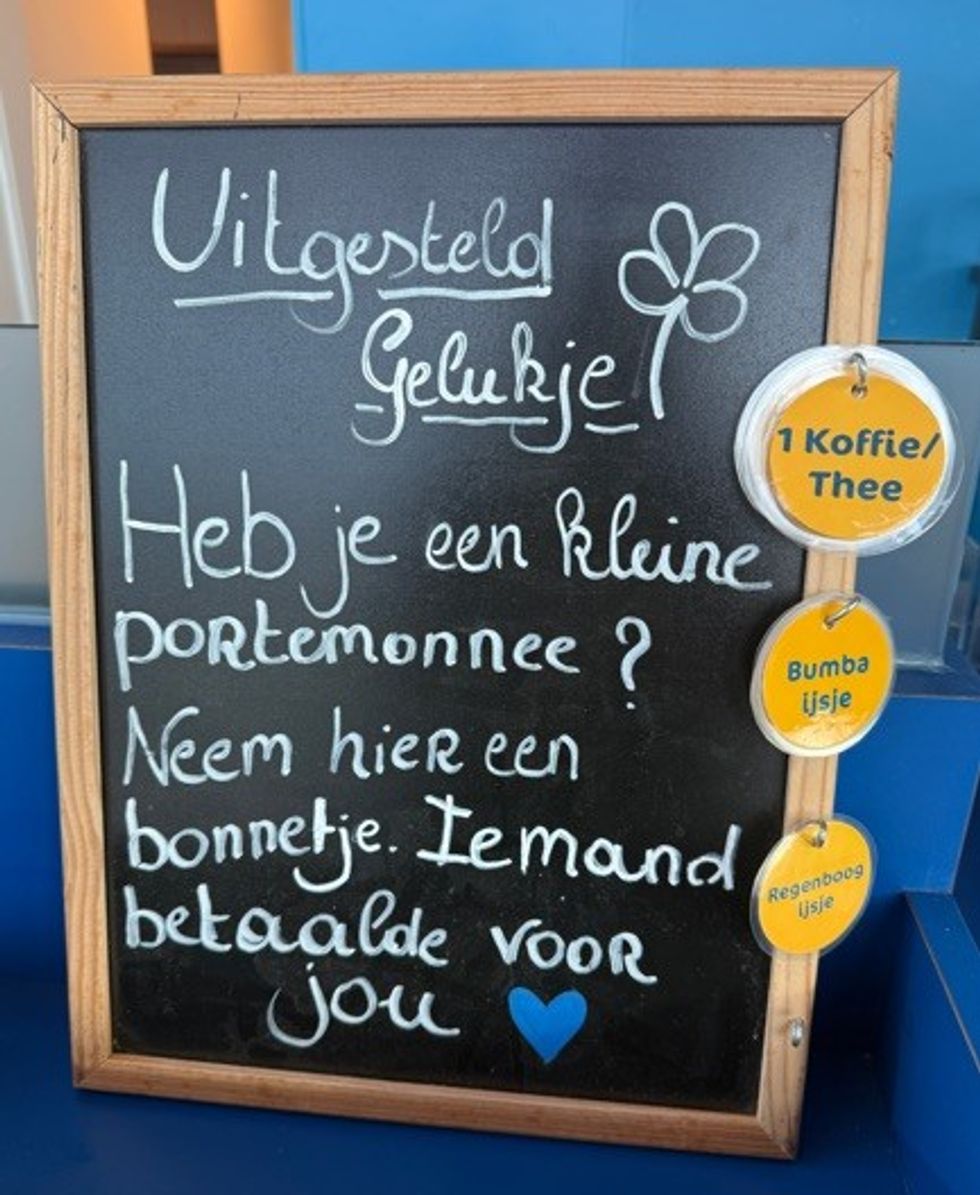 Uitgesteld
Gelukje
Heb je een kleine
portemonnee ?
Neem hier een
bonnetje. Iemand
betaalde voor
jou
1 Koffie/
Thee
Bumba
ijsje
Regenboog
ijsje